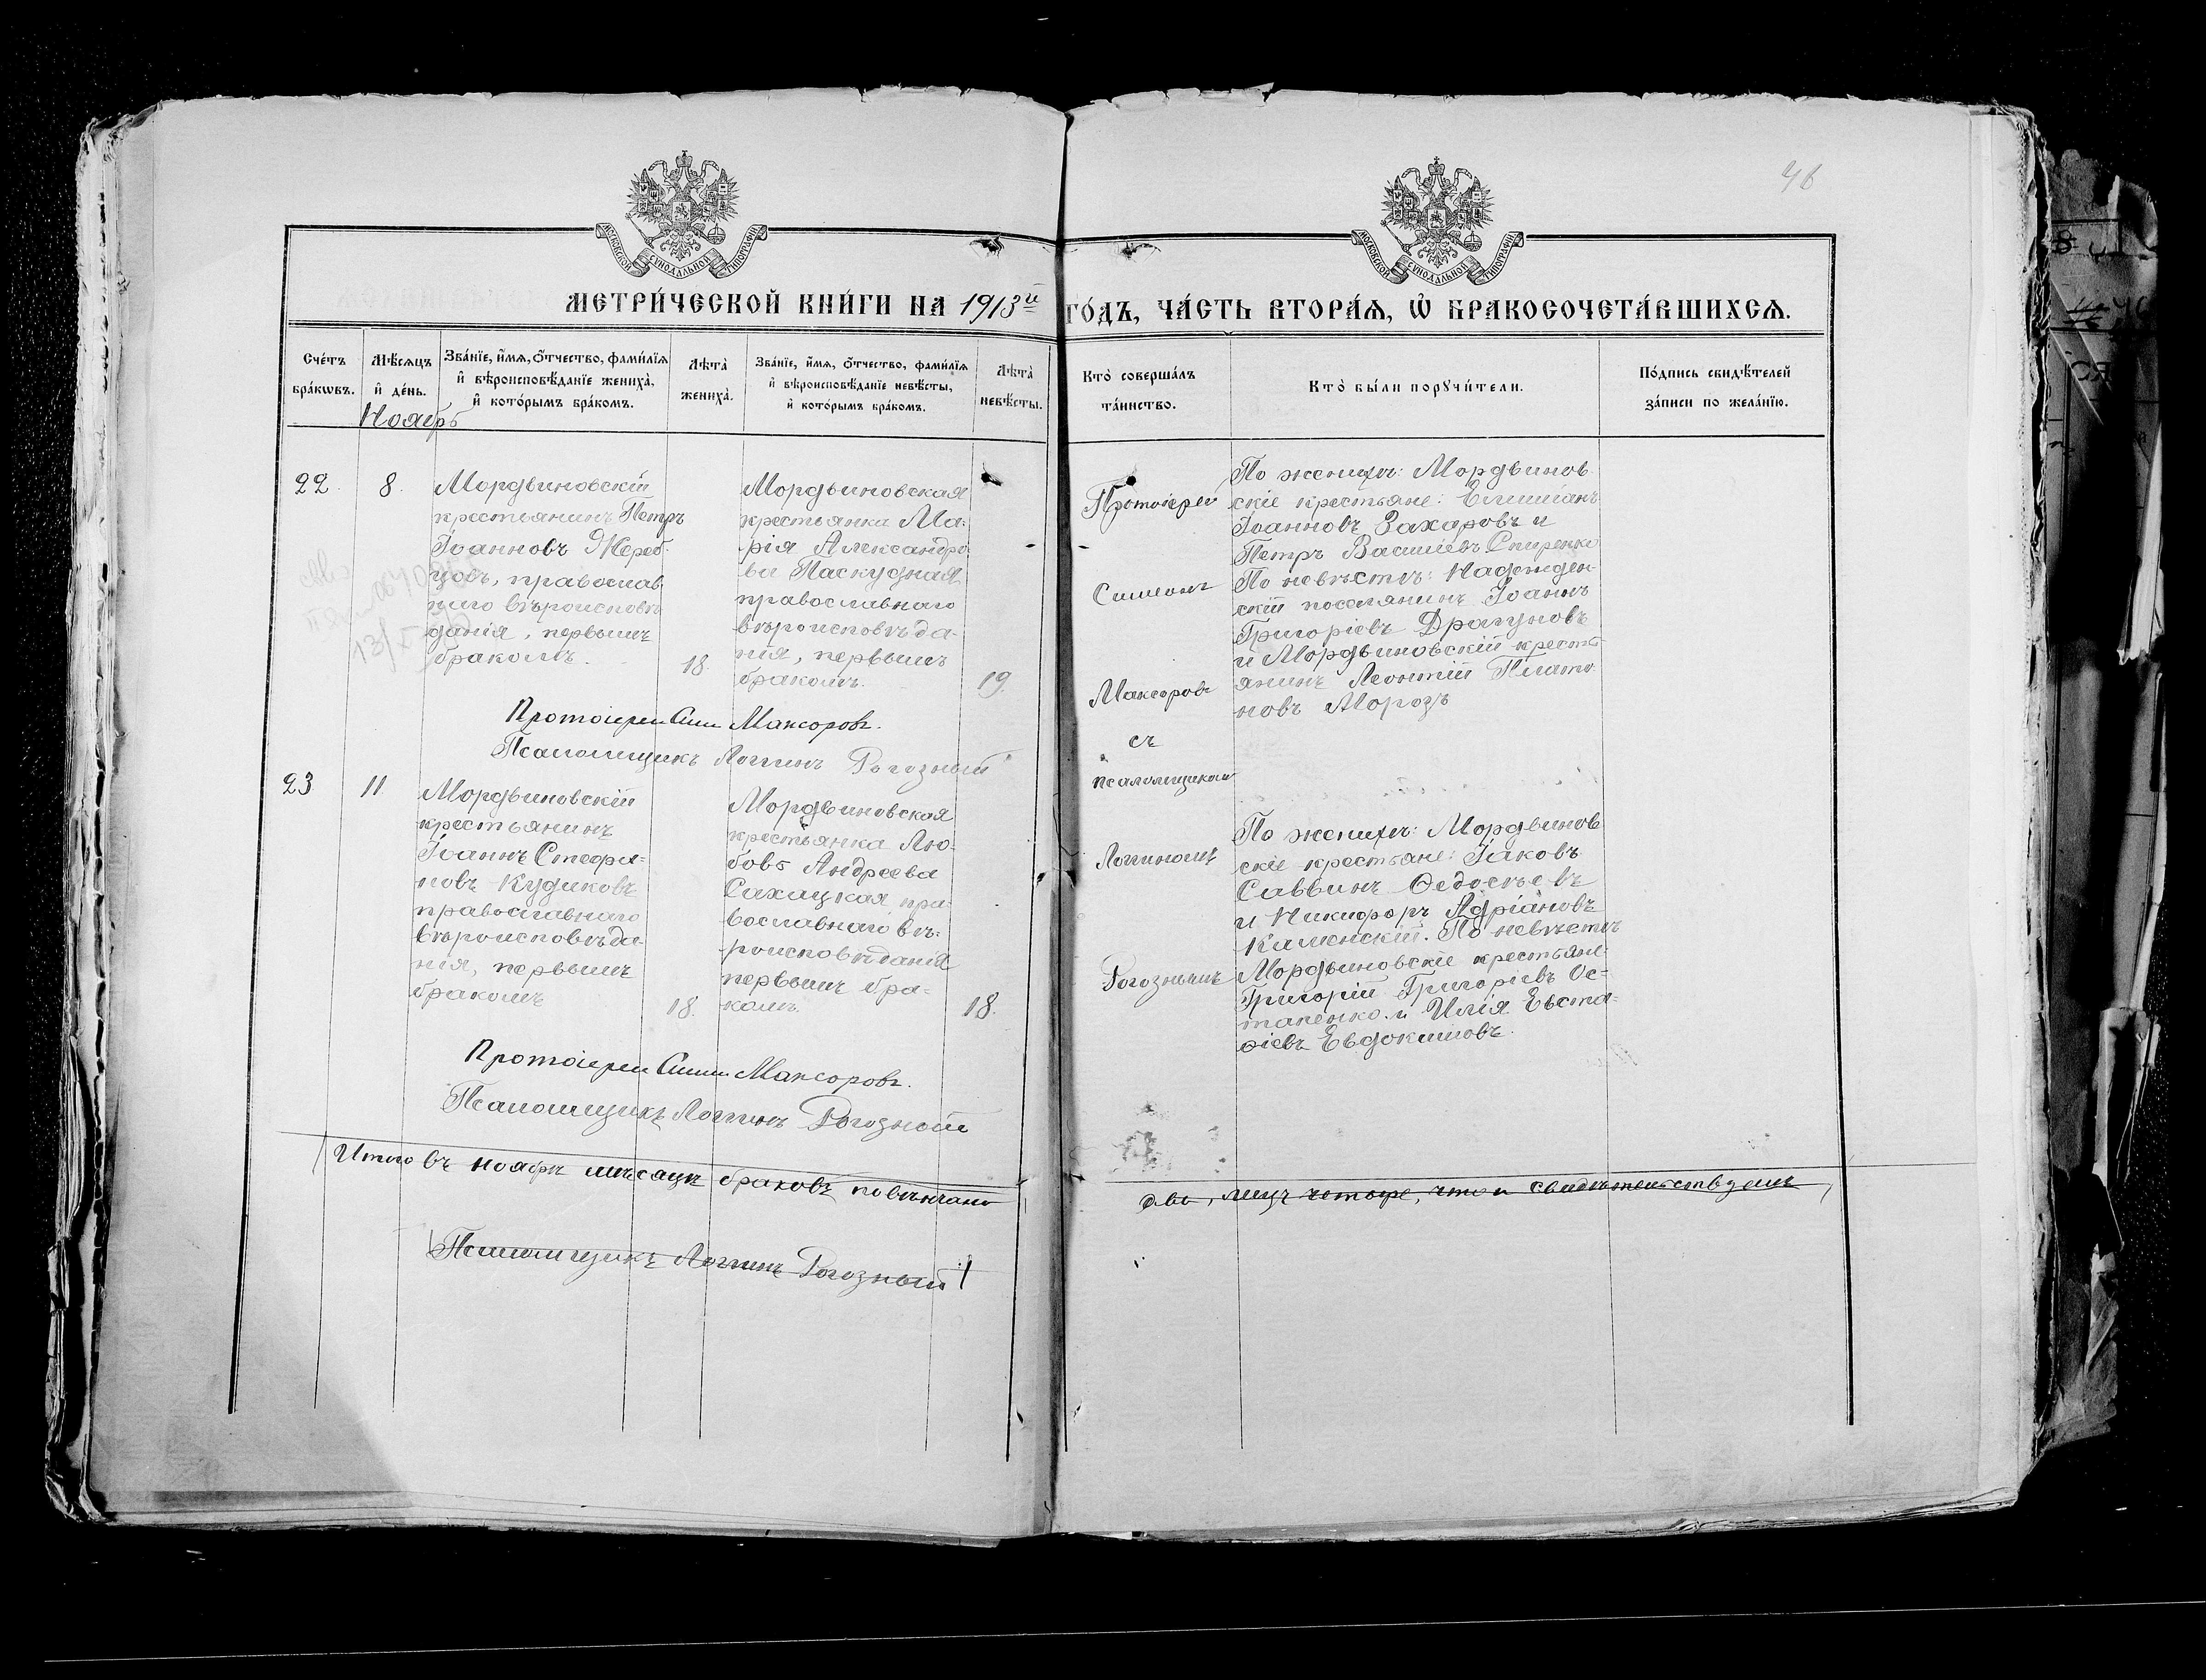 46
МОСКОВСКОЙ СѴНОДАЛЬНОЙ ТИПОГРАФІИ
МОСКОВСКОЙ СѴНОДАЛЬНОЙ ТИПОГРАФІИ
МЕТРИ́ЧЕСКОЙ КНИ́ГИ НА 1913й ГО́ДЪ, ЧА́СТЬ ВТОРА́Я, Ѡ҆ БРАКОСОЧЕТА́ВШИХСЯ.
Сче́тъ
бра́кѡвъ.
Мѣ́сяцъ
и҆ де́нь.
Ноябрь
Зва́нїе, и҆́мя, ѻ҆́тчество, фами́лїя
и҆ вѣроисповѣ́данїе жениха̀,
и҆ кото́рымъ бра́комъ.
Лѣта̀
жениха̀.
Зва́нїе, и҆́мя, ѻ҆́тчество, фами́лїя
и҆ вѣроисповѣ́данїе невѣ́сты,
и҆ кото́рымъ бра́комъ.
Лѣта̀
невѣ́сты.
Кто̀ соверша́лъ
та́инство.
Кто̀ бы́ли порꙋчи́тели.
По́дпись свидѣ́телей
за́писи по жела́нїю.
22.
8.
Мордвиновскій
крестьянинъ Петръ
Іоанновъ Жереб-
цовъ, православ
наго вѣроисповѣ
данія, первымъ
бракомъ.
18.
Мордвиновская
крестьянка Ма-
рія Александро
ва Паскудная
православнаго
вѣроисповѣда-
нія, первымъ
бракомъ.
19.
Протоіерей
Симеонъ
Максоровъ
съ
псаломщикомъ
Логгиномъ
Рогознымъ
По женихѣ: Мордвинов
скіе крестьяне:
Іоанновъ Захаровъ и
Петръ Василіевъ Спиренко
По невѣстѣ: Надежден-
скій поселянинъ Іоаннъ
Григоріевъ Драгуновъ
и Мордвиновскій кресть-
янинъ Леонтій Плато-
новъ Морозъ
Протоіерей Сим Максоровъ.
Псаломщикъ Логгинъ Рогозный
23
11
Мордвиновскій
крестьянинъ
Іоаннъ Стефа-
новъ Кудиковъ
православнаго
вѣроисповѣда-
нія, первымъ
бракомъ
18.
Мордвиновская
крестьянка Лю-
бовь Андреева
Сахацкая пра-
вославнаго вѣ-
роисповѣданія
первымъ бра-
комъ.
18.
По женихѣ: Мордвинов
скіе крестьяне: Іаковъ
Саввинъ Ѳедосѣевъ
и Никифоръ Адріановъ
Каменскій. По невѣстѣ
Мордвиновскіе крестьяне
Григорій Григоріевъ Ос-
тапенко и Илія Евста-
ѳіевъ Евдокимовъ.
Протоіерей Сим Максоровъ.
Псаломщикъ Логгинъ Рогозный
Итого въ ноябрѣ мѣсяцѣ браковъ повѣнчано два, лицъ четыре, что и свидѣтельствуемъ
Псаломщикъ Логгинъ Рогозный